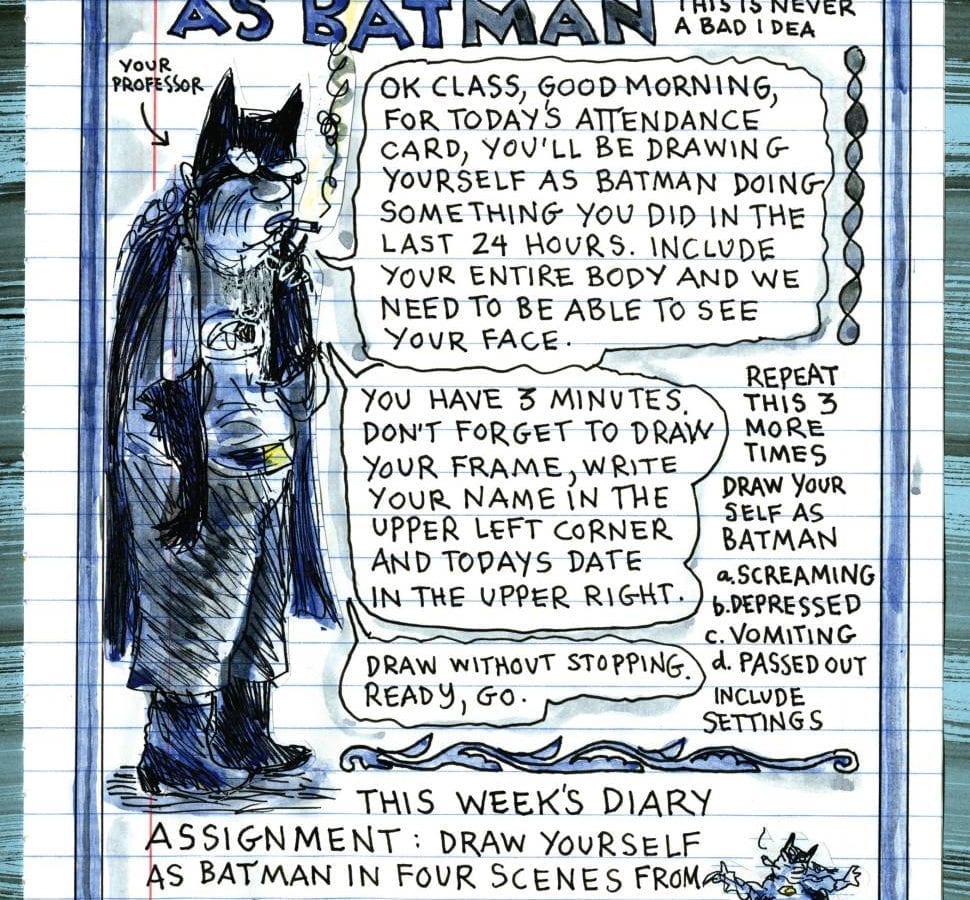 AS BATMAN
THIS IS NEVER
A BAD IDEA
YOUR
PROFESSOR
OK CLASS, GOOD MORNING,
FOR TODAY'S ATTENDANCE
CARD, YOU'LL BE DRAWING
YOURSELF AS BATMAN DOING
SOMETHING YOU DID IN THE
LAST 24 HOURS. INCLUDE
YOUR ENTIRE BODY AND WE
NEED TO BE ABLE TO SEE
YOUR FACE.
YOU HAVE 3 MINUTES.
DON'T FORGET TO DRAW
YOUR FRAME, WRITE
YOUR NAME IN THE
UPPER LEFT CORNER
AND TODAYS DATE
IN THE UPPER RIGHT.
DRAW WITHOUT STOPPING.
READY, GO.
REPEAT
THIS 3
MORE
TIMES
DRAW YOUR
SELF AS
BATMAN
a. SCREAMING
b. DEPRESSED
c. VOMITING
d. PASSED OUT
INCLUDE
SETTINGS
THIS WEEK'S DIARY
ASSIGNMENT: DRAW YOURSELF
AS BATMAN IN FOUR SCENES FROM